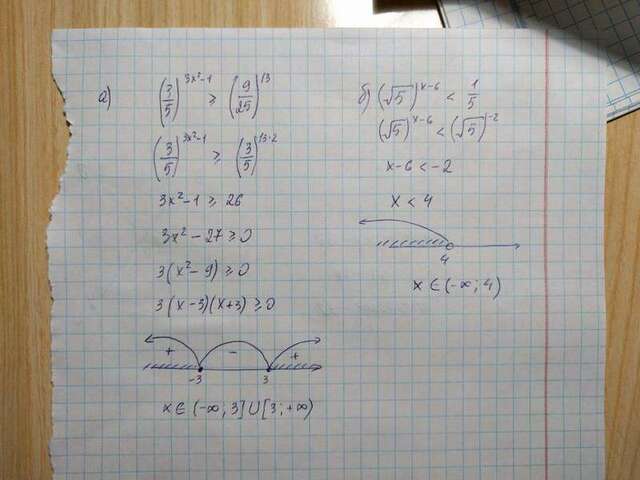 а) (3/5)^(3x²-1) ≥ (9/25)^13
(3/5)^(3x²-1) ≥ (3/5)^(13·2)
3x²-1 ≥ 26
3x² - 27 ≥ 0
3(x² - 9) ≥ 0
3(x-3)(x+3) ≥ 0
+ - +
-3 3
x ∈ (-∞; 3] ∪ [3; +∞)
б) (√5)^(x-6) < 1/5
(√5)^(x-6) < (√5)^(-2)
x-6 < -2
x < 4
4
x ∈ (-∞; 4)